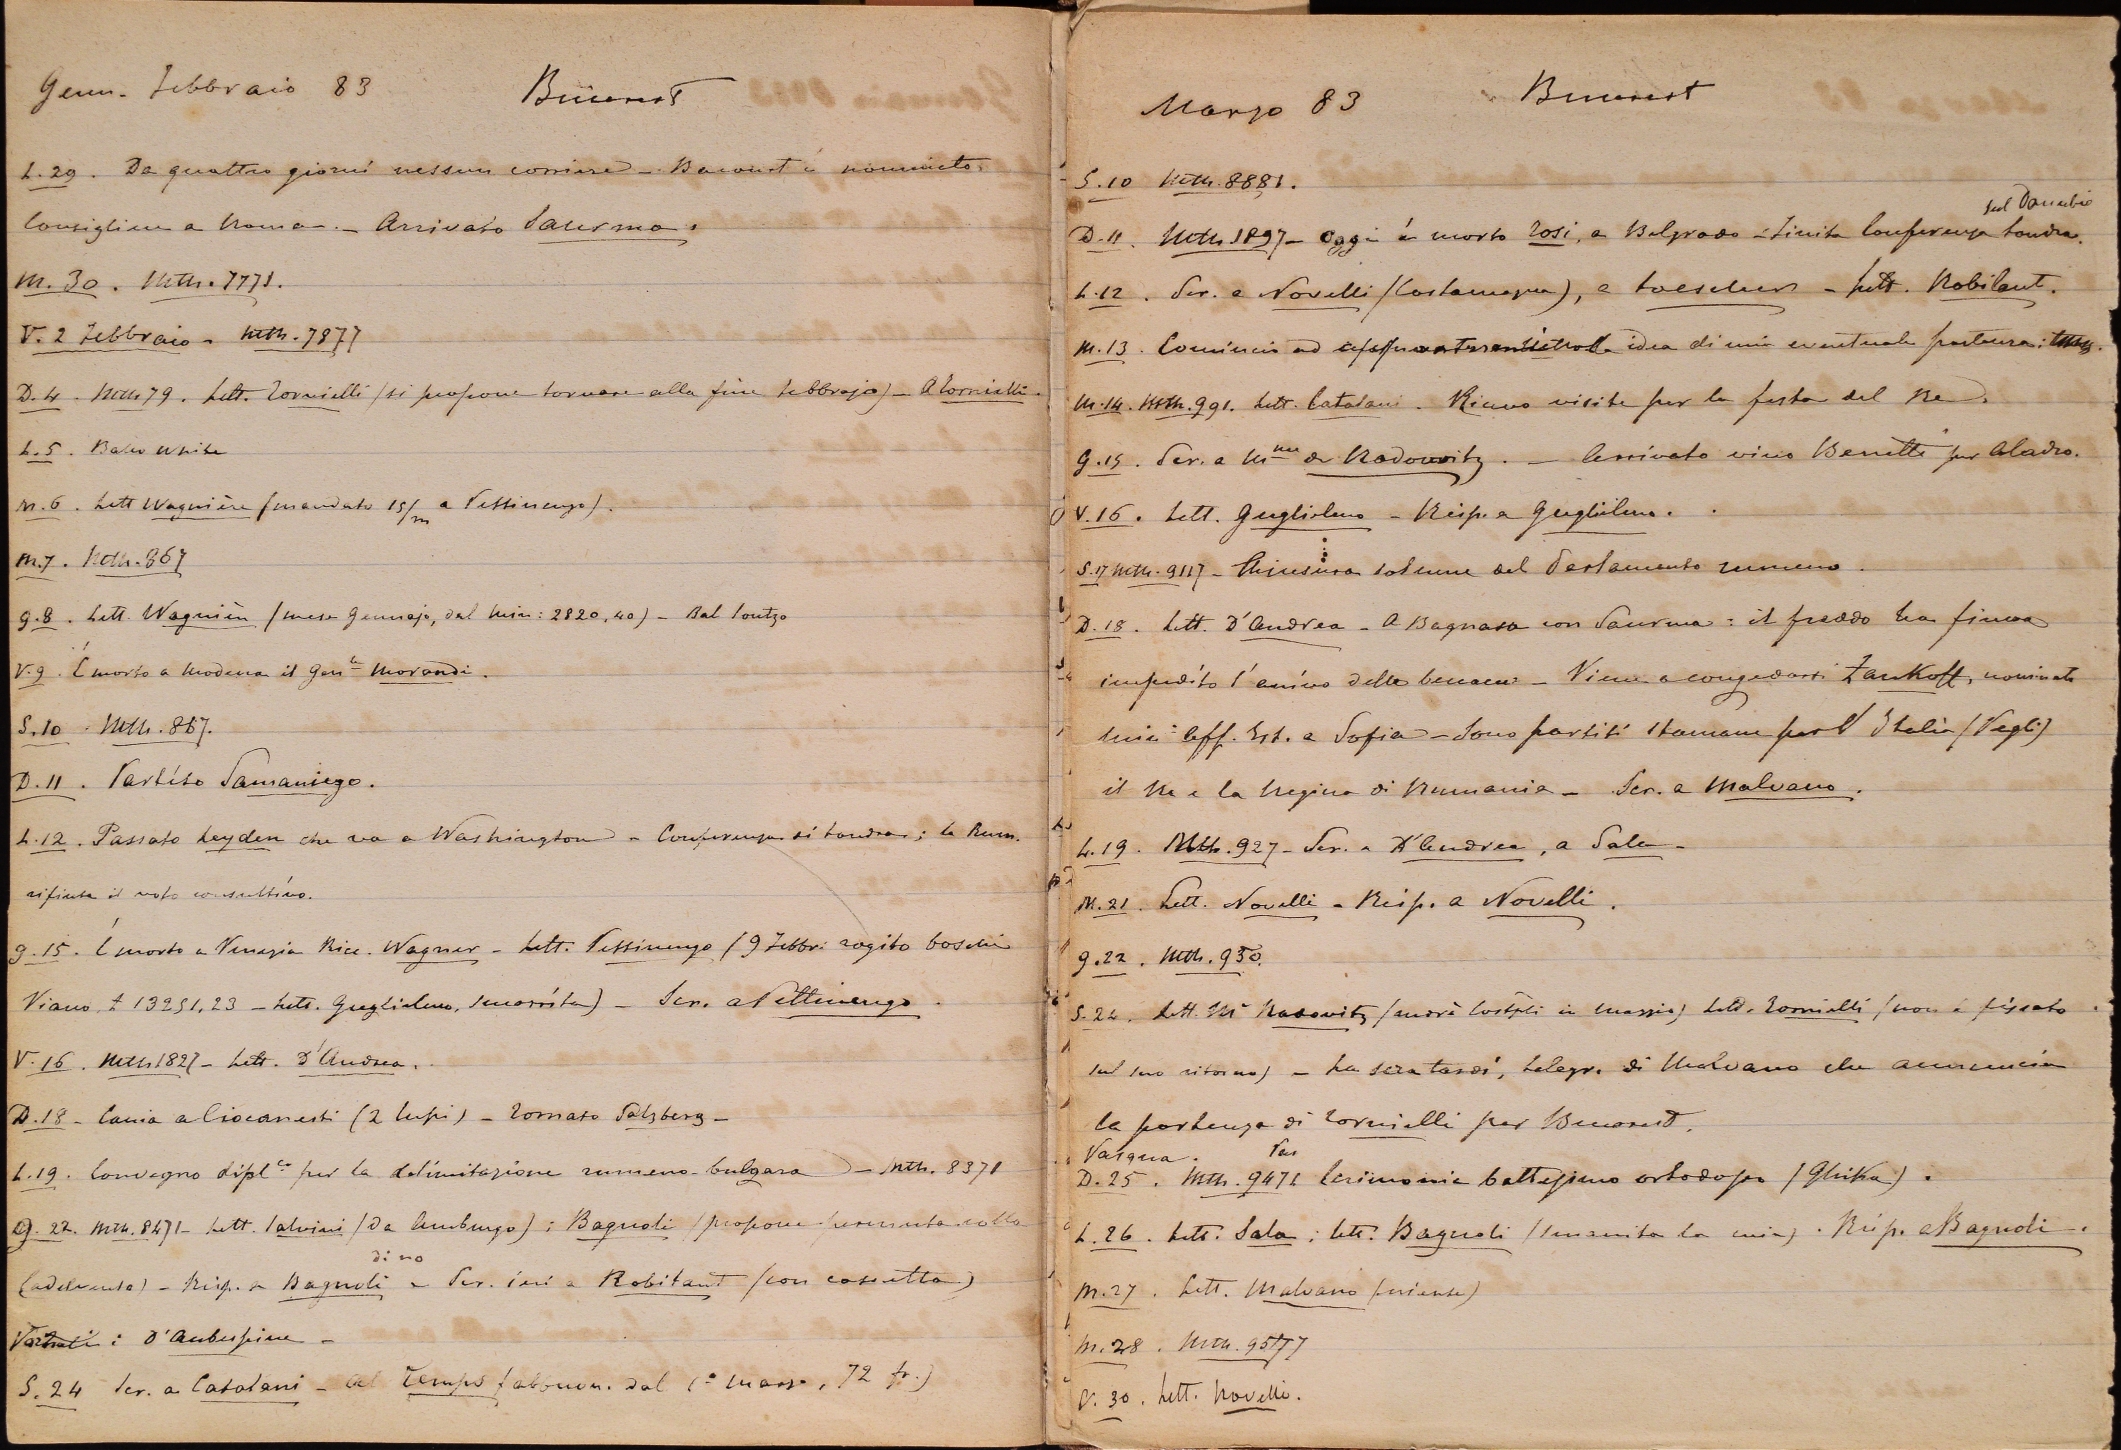 Genn. Febbraio 83 Bucarest
L. 29. Da quattro giorni nessun corriere - Bacourt è nominato
Consigliere a Roma - Arrivato Saurma.
M. 30. Mth. 7771.
V. 2 Febbraio - Mth. 7877
D. 4. Mth 79. Lett. Tornielli (si propone tornare alla fine febbrajo) - A Tornielli.
L. 5. Ballo White
M. 6. Lett Wagnière (mandato 15/m a Pettinengo).
M. 7. Mth. 867
G. 8. Lett. Wagnièr (mese Gennajo, dal Min: 2820,40) - Bal Soutzo
V. 9. È morto a Modena il Gen.le Morandi.
S. 10. Mth. 867.
D. 11. Partito Samaniego.
L. 12. Passato Leyden che va a Washington - Conferenza di Londra; la Rum.
rifiuta il voto consultivo.
G. 15. È morto a Venezia Ricc. Wagner - Lett. Pettinengo (9 Febbr: rogito boschi
Viano, £ 13251,23 - Lett. Guglielmo, smarrita) - Scr. a Pettinengo.
V. 16. Mth 1827 - Lett. D'Andrea.
D. 18 - Caccia a Ciocanesti (2 lupi) - Tornato Salzberg -
L. 19. Convegno dipl.co per la delimitazione rumeno-bulgara - Mth. 8371
G. 22. Mth. 8471 - Lett. Salvini (da Amburgo); Bagnoli (propone permuta colla
dino
) - Risp. a Bagnoli - Scr. ieri a Robilant (con cassetta)
: D'Aubespine -
S. 24 Scr. a Catalani - Al Temps (abbuon. dal 1° marzo, 72 fr.)
Marzo 83 Bucarest
S. 10 Mth. 8881.
sul Danubio
D. 11. Mth 1897 - Oggi è morto Tosi, a Belgrado - Finita Conferenza Londra.
L. 12. Scr. a Novelli (Costamagna), a Loescher - Lett. Robilant.
M. 13. Comincio ad idea di mia eventuale partenza:
M. 14. Mth. 991. Lett. Catalani. Ricevo visite per la festa del Re.
G. 15. Scr. a Mme de Radowitz. - Arrivato vino Benetti per Aladro.
V. 16. Lett. Guglielmo - Risp. a Guglielmo.
S. 17 Mth. 9117 - Chiusura solenne del Parlamento rumeno.
D. 18. Lett. D'Andrea - A Bagnasa con Saurma: il freddo ha finora
impedito l'arrivo delle beccacce - Viene a congedarsi Zankoff, nominato
Min: Aff. Est. a Sofia - Sono partiti stamane per l'Italia (Pegli)
il Re e la Regina di Rumania - Scr. a Malvano.
L. 19. Mth. 927 - Scr. a D'Andrea, a Sala -
M. 21. Lett. Novelli - Risp. a Novelli.
G. 22. Mth. 950.
S. 24. Lett. Me Radowitz (andrà Costpli in maggio) Lett. Tornielli (non è fissato
sul suo ritorno) - La sera tardi, telegr. di Malvano che annuncia
la partenza di Tornielli per Bucarest.
Pasqua.
D. 25. Mth. 9471 Cerimonia battesimo ortodosso (Ghika).
L. 26. Lett. Sala; lett. Bagnoli (smarrita la mia). Risp. a Bagnoli.
M. 27. Lett. Malvano (niente)
M. 28. Mth. 9577
V. 30. Lett. Novelli.